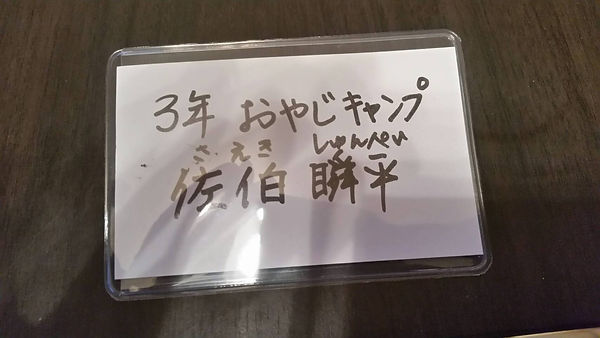 3年 おやじキャンプ
さえき しゅんぺい
佐伯 瞬平